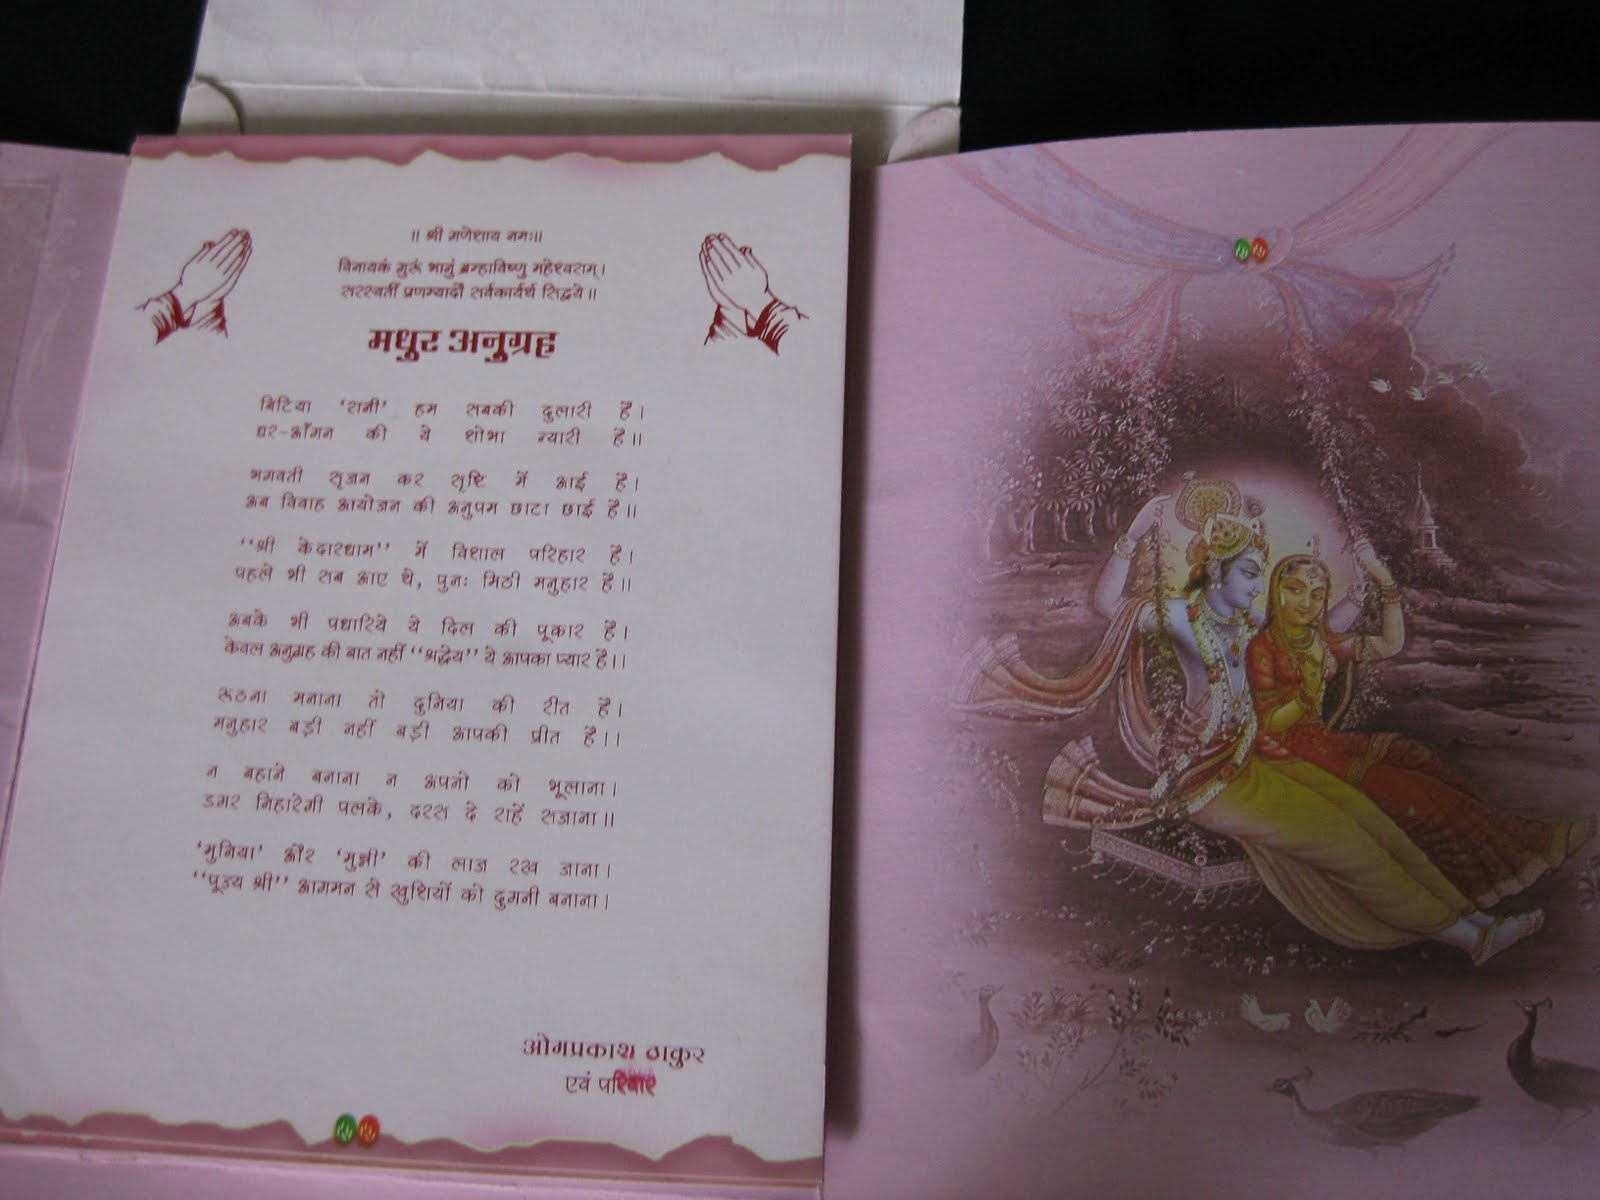 ॥ श्री गणेशाय नमः॥
विनायकं गुरूं भानुं ब्रम्हाविष्णु महेश्वराम्।
सरस्वतीं प्रणम्यादौ सर्वकार्यर्थ सिद्धये॥
मधुर अनुग्रह
बिटिया ‘रानी’ हम सबकी दुलारी है।
घर-आँगन की ये शोभा न्यारी है॥
भगवती सृजन कर सृष्टि में आई है।
अब विवाह आयोजन की अनुपम छाटा छाई है॥
‘‘श्री केदारधाम’’ में विशाल परिहार है।
पहले भी सब आए थे, पुनः मिठी मनुहार है॥
अबके भी पधारिये ये दिल की पूकार है।
केवल अनुग्रह की बात नहीं ‘‘श्रद्धेय’’ ये आपका प्यार है।।
रूठना मनाना तो दुनिया की रीत है।
मनुहार बड़ी नहीं बड़ी आपकी प्रीत है।।
न बहाने बनाना न अपनो को भूलाना।
डगर निहारेगी पलके, दरस दे राहें सजाना॥
‘मुनिया’ और ‘मुन्नी’ की लाज रख जाना।
‘‘पूज्य श्री’’ आगमन से खुशियों को दुगनी बनाना।
ओमप्रकाश ठाकुर
एवं परिवार